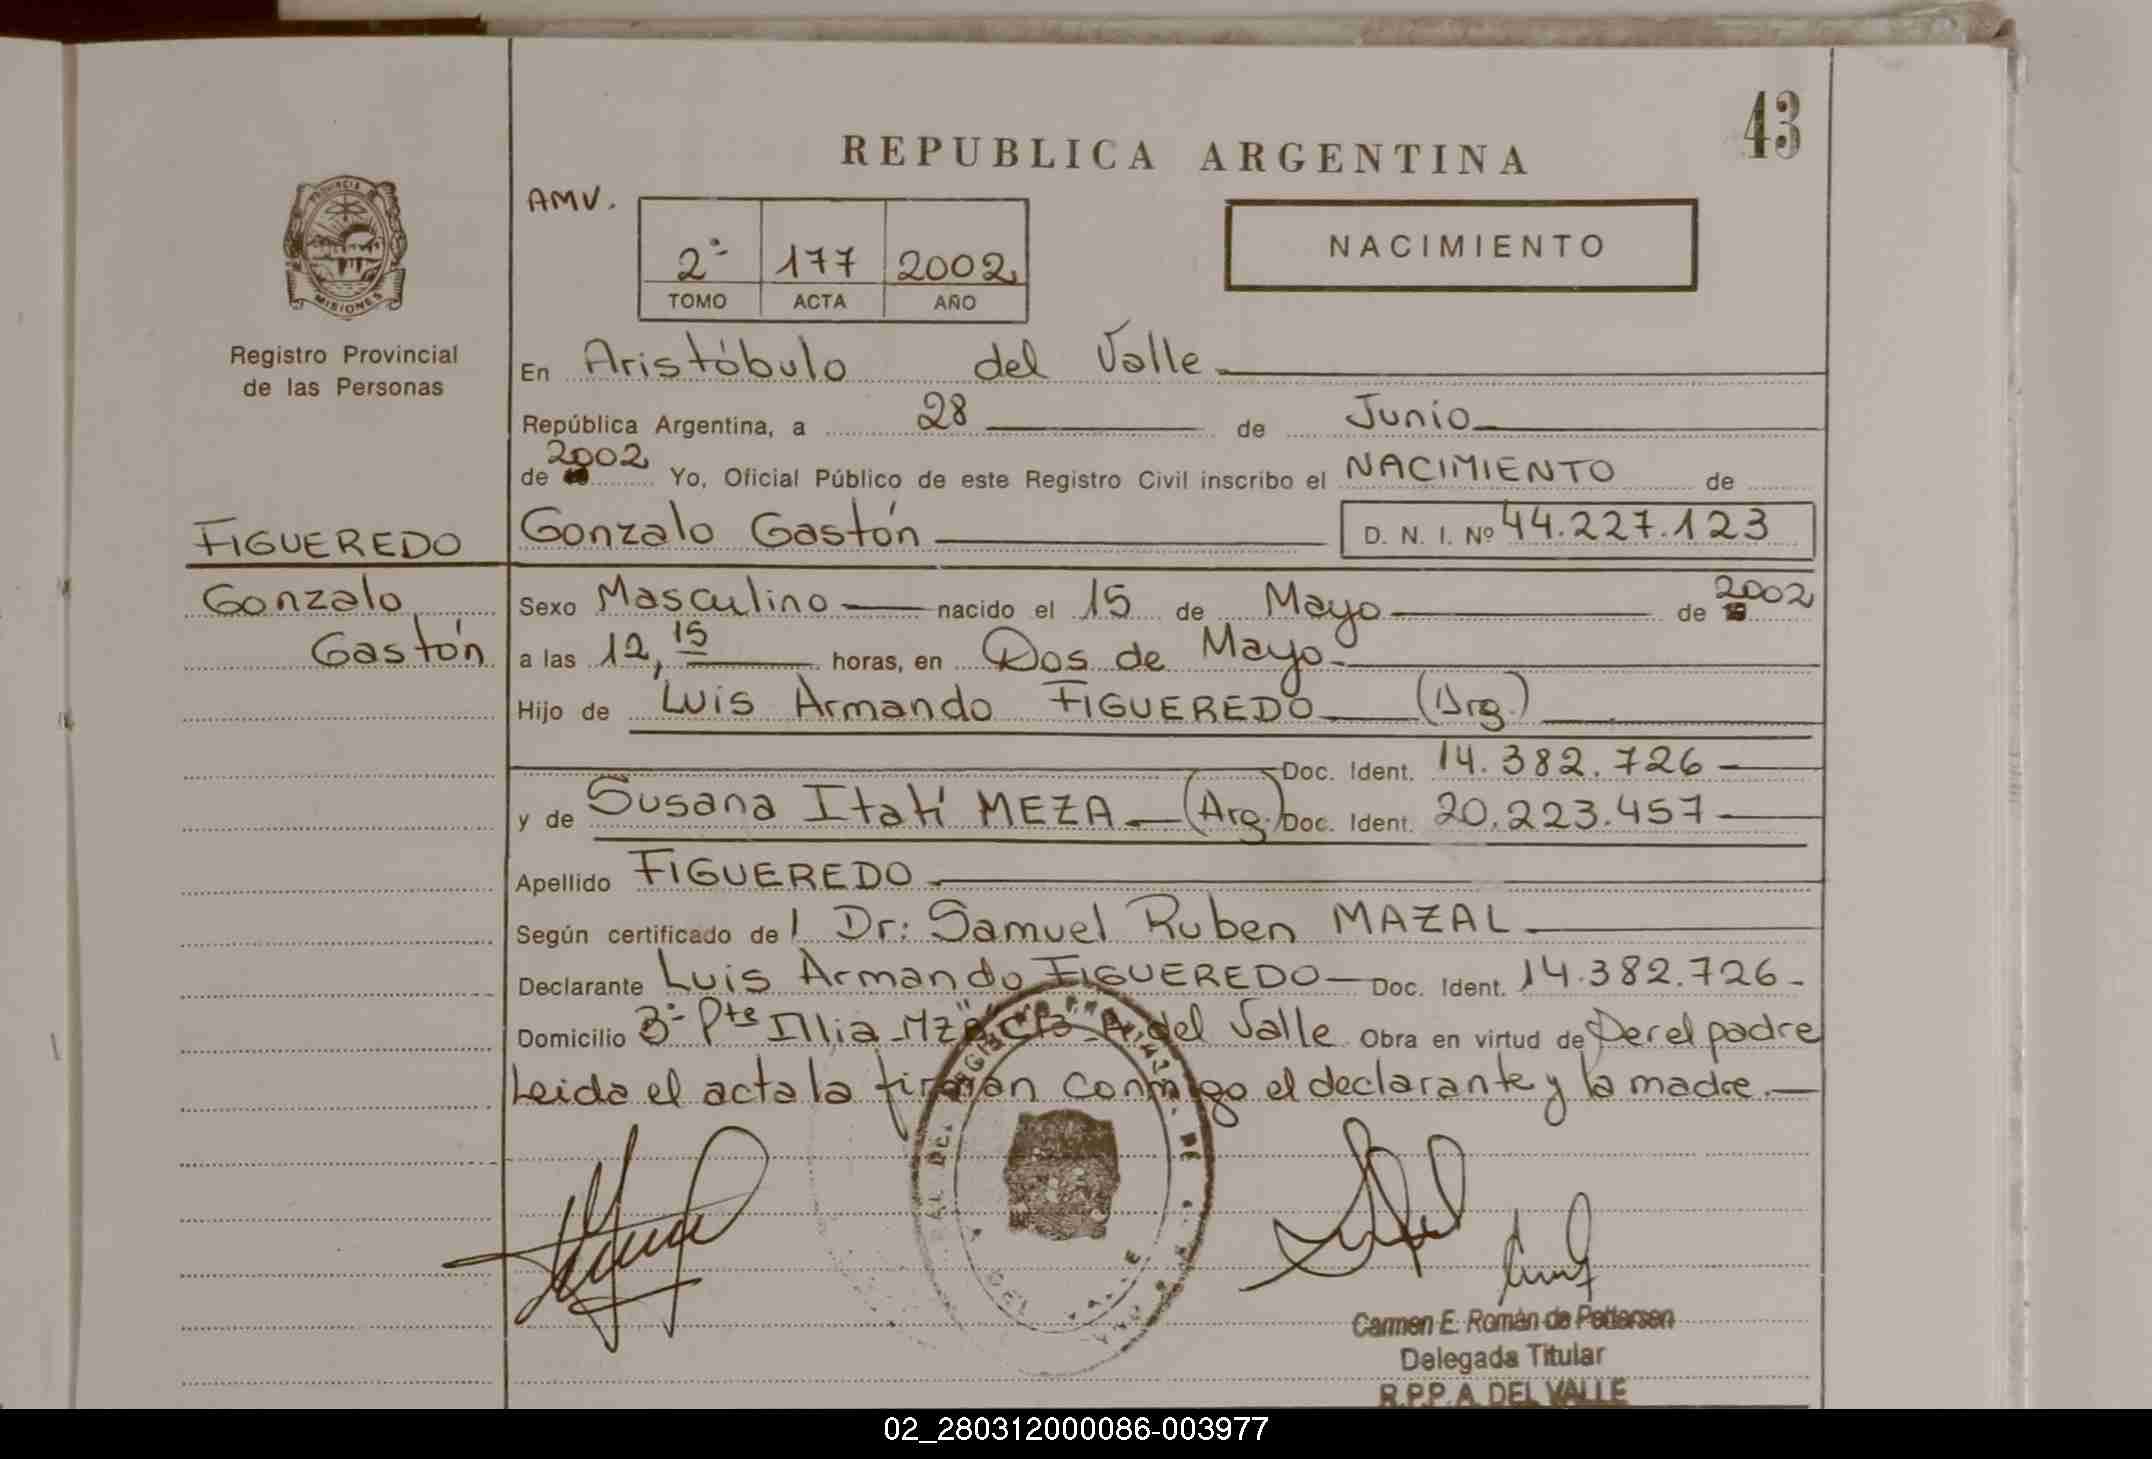 43
REPUBLICA ARGENTINA
AMV.
PROVINCIA
MISIONES
Registro Provincial
de las Personas
2º 177 2002
TOMO ACTA AÑO
NACIMIENTO
En Aristóbulo del Valle
República Argentina, a 28 de Junio
de 2002 Yo, Oficial Público de este Registro Civil inscribo el NACIMIENTO de
FIGUEREDO Gonzalo Gastón D. N. I. Nº 44.227.123
Gonzalo Sexo Masculino nacido el 15 de Mayo de 2002
Gastón a las 12,15 horas, en Dos de Mayo
Hijo de Luis Armando FIGUEREDO (Arg.)
Doc. Ident. 14.382.726
y de Susana Itatí MEZA (Arg.) Doc. Ident. 20.223.457
Apellido FIGUEREDO
Según certificado de l Dr: Samuel Ruben MAZAL
Declarante Luis Armando FIGUEREDO Doc. Ident. 14.382.726
Domicilio Bº Pte Illia A. del Valle Obra en virtud de Ser el padre
Leida el acta la firman conmigo el declarante y la madre.
Carmen E. Román de Pettersen
Delegada Titular
R.P.P. A. DEL VALLE
02_280312000086-003977